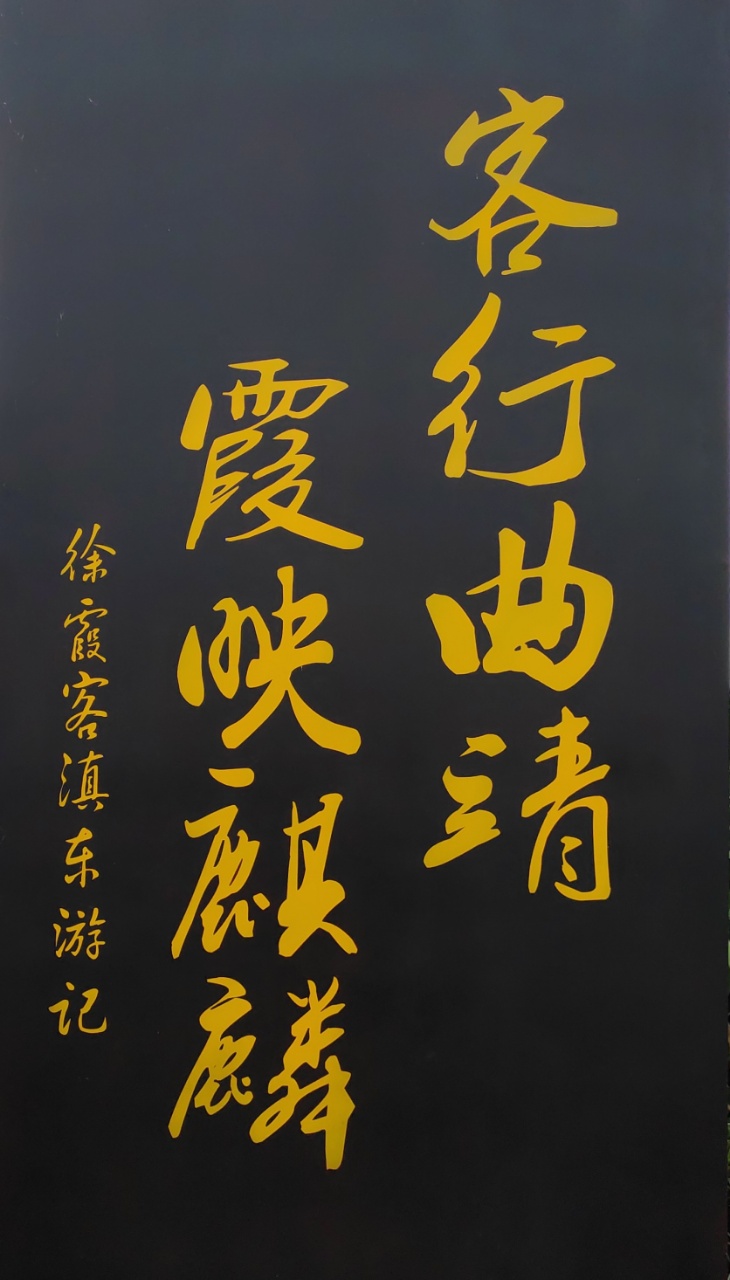 客行曲靖
霞映麒麟
徐霞客滇东游记